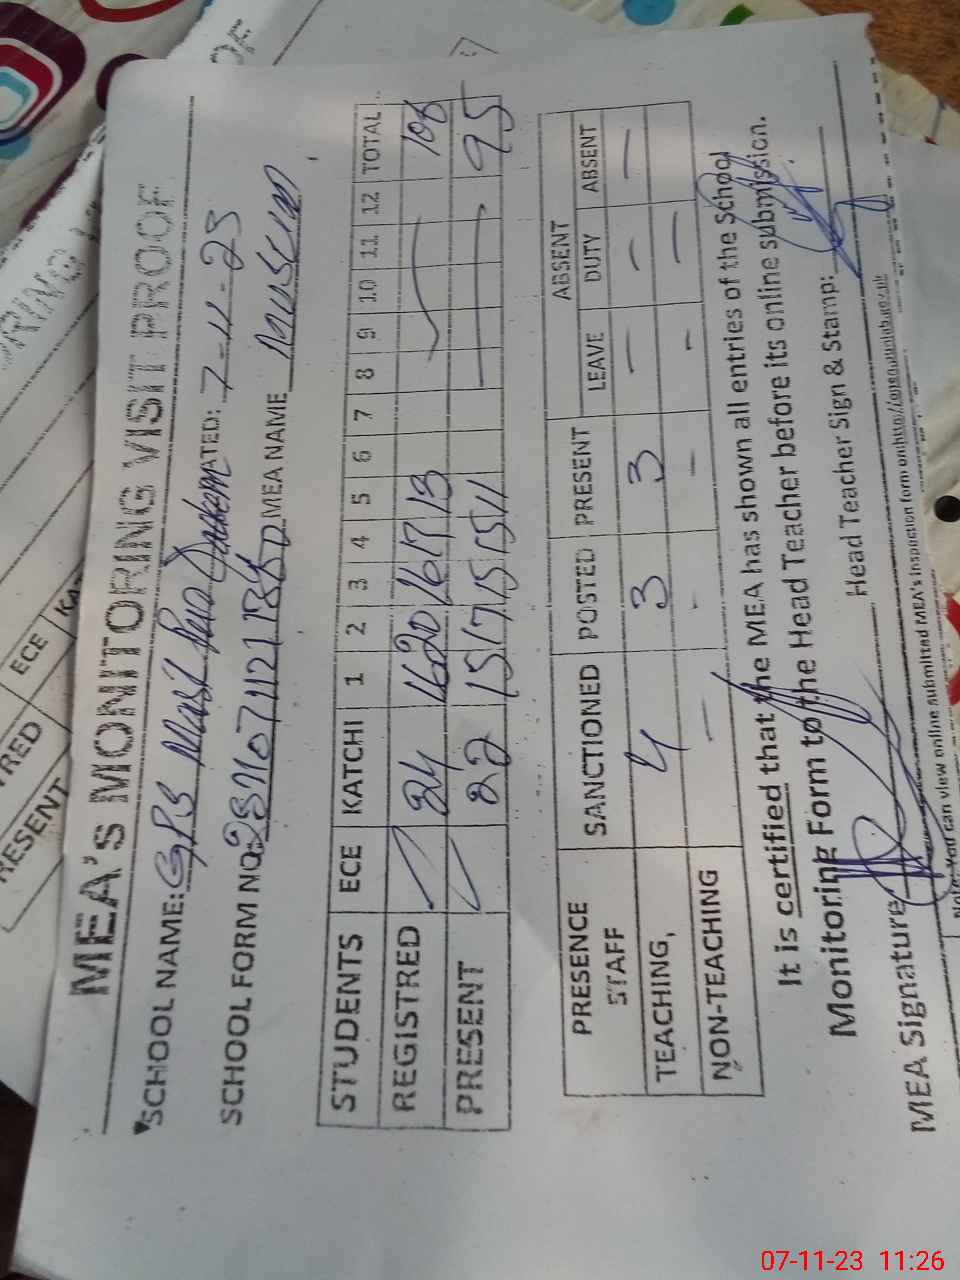 MEA's MONITORING VISIT PROOF
SCHOOL NAME: GPS Mast Pura DATED: 7-11-23
SCHOOL FORM NO. MEA NAME
STUDENTS ECE KATCHI 1 2 3 4 5 6 7 8 9 10 11 12 TOTAL
REGISTRED 24 16 20 16 17 13 106
PRESENT 22 15 17 15 15 11 95
PRESENCE STAFF SANCTIONED POSTED PRESENT ABSENT
LEAVE DUTY ABSENT
TEACHING, 4 3 3 – – –
NON-TEACHING – - – - –
It is certified that the MEA has shown all entries of the School
Monitoring Form to the Head Teacher before its online submission.
MEA Signature Head Teacher Sign & Stamp:
Note: You can view online submitted MEA's Inspection form on:
RING
ECE KAT
PRESENT
07-11-23 11:26